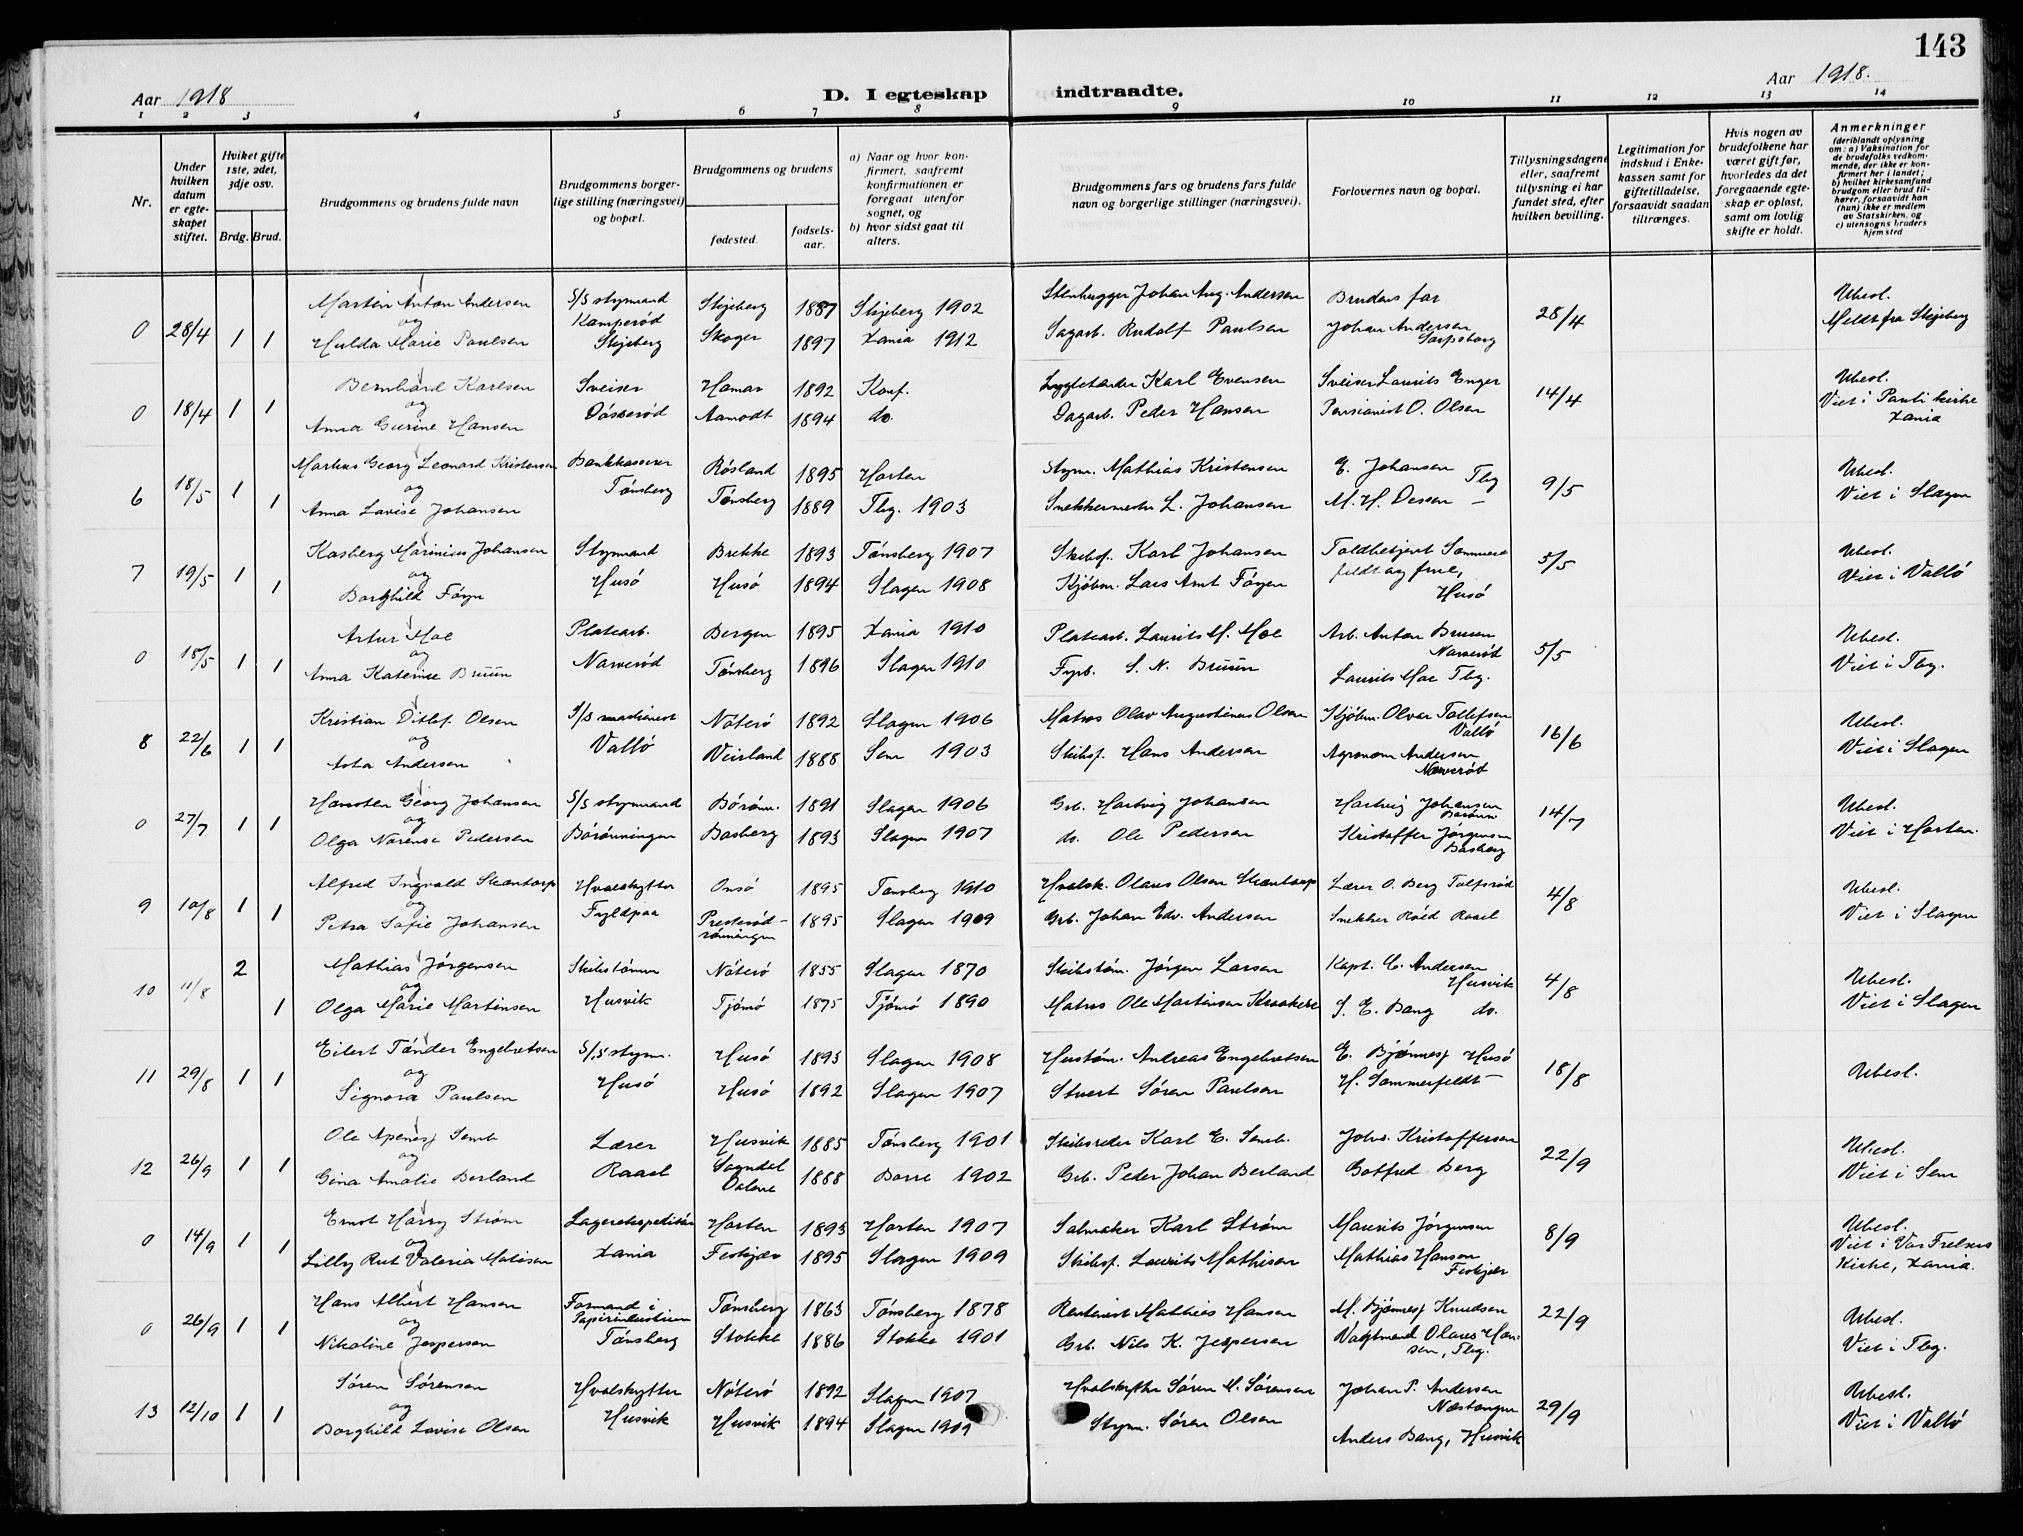 143
Aar 1918
D. I egteskap indtraadte.
Aar 1918.
1 2 3 4 5 6 7 8 9 10 11 12 13 14
Nr.
Under hvilken datum er egteskapet stiftet.
Hviket gifte 1ste, 2det, 3dje osv.
Brdg. Brud.
Brudgommens og brudens fulde navn
Brudgommens borgerlige stilling (næringsvei) og bopæl.
Brudgommens og brudens
fødested. fødselsaar.
a) Naar og hvor konfirmert, saafremt konfirmationen er foregaat utenfor sognet, og
b) hvor sidst gaat til alters.
Brudgommens fars og brudens fars fulde navn og borgerlige stillinger (næringsvei).
Forlovernes navn og bopæl.
Tillysningsdagene eller, saafremt tillysning ei har fundet sted, efter hvilken bevilling.
Legitimation for indskud i Enkekassen samt for giftetilladelse, forsaavidt saadan tiltrænges.
Hvis nogen av brudefolkene har været gift før, hvorledes da det foregaaende egteskap er opløst, samt om lovlig skifte er holdt.
Anmerkninger (deriblandt oplysning om: a) Vaksination for de brudefolks vedkommende, der ikke er konfirmert her i landet; b) hvilket kirkesamfund brudgom eller brud tilhører, forsaavidt han (hun) ikke er medlem av Statskirken, og c) utensogns bruders hjemsted
0 28/4 1 1 Martin Anton Andersen S/S styrmand Skjeberg 1887 Skjeberg 1902 Stenhugger Johan Aug. Andersen Brudens far 28/4 Ubesl.
og Kamperød Meldt fra Skjeberg
Hulda Marie Paulsen Skjeberg Skoger 1897 Xania 1912 Sagarb. Rudolf Paulsen Johan Andersen Sarpsborg
0 18/4 1 1 Bernhard Karlsen Sveiser Hamar 1892 Konf. Karl Evensen Sveiser Laurits Enger 14/4 Ubesl.
og Viet i Pauli kirke
Anna Gurine Hansen Aamodt 1894 do. Dagarb. Peder Hansen Pensionist O. Olsen Xania
6 18/5 1 1 Martus Georg Leonard Kristensen Bankkasserer Røsland 1895 Horten Styrm. Mathias Kristensen E. Johansen Tbg 9/5 Ubesl.
og Tønsberg
Anna Lovise Johansen Tønsberg 1889 Tbg. 1903 Snekkermester L. Johansen M. H. Dessen — Viet i Slagen
7 19/5 1 1 Kasberg Marinius Johansen Styrmand Brekke 1893 Tønsberg 1907 Skibsf. Karl Johansen Toldbetjent Sommerfeldt og frue, 5/5 Ubesl.
og
Borghild Føyn Husø Husø 1894 Slagen 1908 Kjøbm. Lars Amt Føyen Husø Viet i Vallø
0 18/5 1 1 Artur Moe Platearb. Bergen 1895 Xania 1910 Platearb. Laurits M. Moe Arb. Anton Bruun Narverød 5/5 Ubesl.
og
Anna Katerine Bruun Narverød Tønsberg 1896 Slagen 1910 Fyrb. S. N. Bruun Laurits Moe Tbg. Viet i Tbg.
8 22/6 1 1 Kristian Ditlef Olsen S/S maskinist Nøterø 1892 Slagen 1906 Matros Olav Augustinus Olsen Kjøbm. Olvar Tollefsen Vallø 16/6 Ubesl.
og
Asta Andersen Vallø Veierland 1888 Sem 1903 Skibsf. Hans Andersen Agronom Andersen Narverød Viet i Slagen
0 27/7 1 1 Hansten Georg Johansen S/S styrmand Børønn. 1891 Slagen 1906 Grb. Hartvig Johansen Hartvig Johansen Børønn 14/7 Ubesl.
og
Olga Narense Pedersen Børønningen Basberg 1893 Slagen 1907 do. Ole Pedersen Kristoffer Jørgensen Basberg Viet i Horten.
9 10/8 1 1 Alfred Ingvald Skæntorp Hvalskytter Onsø 1895 Tønsberg 1910 Hvalsk. Olaus Olsen Skæntorp Lærer O. Berg Tolfsrød 4/8 Ubesl.
og
Petra Sofie Johansen Fyldpaa Presterød-rønningen 1895 Slagen 1909 Grb. Johan Edv. Andersen Snekker Røed Raael Viet i Slagen
10 11/8 2 1 Mathias Jørgensen Skibstømm Nøterø 1855 Slagen 1870 Skibstøm. Jørgen Larsen Kapt. C. Andersen Husvik 4/8 Ubesl.
og
Olga Marie Martinsen Husvik Tjømø 1875 Tjømø 1890 Matros Ole Martinsen Kraakere S. E. Bang do. Viet i Slagen
11 29/8 1 1 Eilert Tønder Engebretsen S/S styrm. Husø 1893 Slagen 1908 Hustøm. Andreas Engebretsen E. Bjønnesj Husø 18/8 Ubesl.
og
Signora Paulsen Husø Husø 1892 Slagen 1907 Stuert Søren Paulsen H. Sommerfeldt —
12 26/9 1 1 Ole Apenesj Semb Lærer Husvik 1885 Tønsberg 1901 Skibsreder Karl E. Semb. Johs. Kristoffersen 22/9 Ubesl.
og
Gina Amalie Berland Raael Sogndal Dalane 1888 Borre 1902 Grb. Peder Johan Berland Gotfred Berg Viet i Sem
0 14/9 1 1 Ernst Harry Strøm Lagerekspeditør Horten 1893 Horten 1907 Salmaker Karl Strøm Maurits Jørgensen 8/9 Ubesl.
og Viet i Vor Frelsers
Lilly Rut Valeria Matisen Xania Feskjær 1895 Slagen 1909 Skibsf. Laurits Mathisen Mathias Hansen Feskjær Kirke, Xania.
0 26/9 1 1 Hans Albert Hansen Formand i Papirindustrien Tønsberg 1863 Tønsberg 1878 Rentenist Mathias Hansen M. Bjønnesj Knudsen 22/9 Ubesl.
og
Nikoline Jespersen Tønsberg Stokke 1886 Stokke 1901 Grb. Nils K. Jespersen Vagtmand Olaus Hansen, Tbg. Viet i Tbg.
13 12/10 1 1 Søren Sørensen Hvalskytter Nøterø 1892 Slagen 1907 Hvalskytter Søren M. Sørensen Johan P. Andersen Næstangen 29/9 Ubesl.
og
Borghild Lovise Olsen Husvik Husvik 1894 Slagen 1909 Styrm. Søren Olsen Anders Bang, Husvik Viet i Vallø